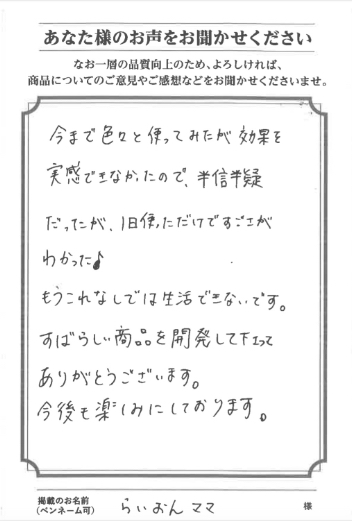 あなた様のお声をお聞かせください
なお一層の品質向上のため、よろしければ、
商品についてのご意見やご感想などをお聞かせくださいませ。
今まで色々と使ってみたが効果を
実感できなかったので、半信半疑
だったが、1日使っただけですごさが
わかった♪
もうこれなしでは生活できないです。
すばらしい商品を開発して下さって
ありがとうございます。
今後も楽しみにしております。
掲載のお名前
(ペンネーム可)
らいおんママ 様